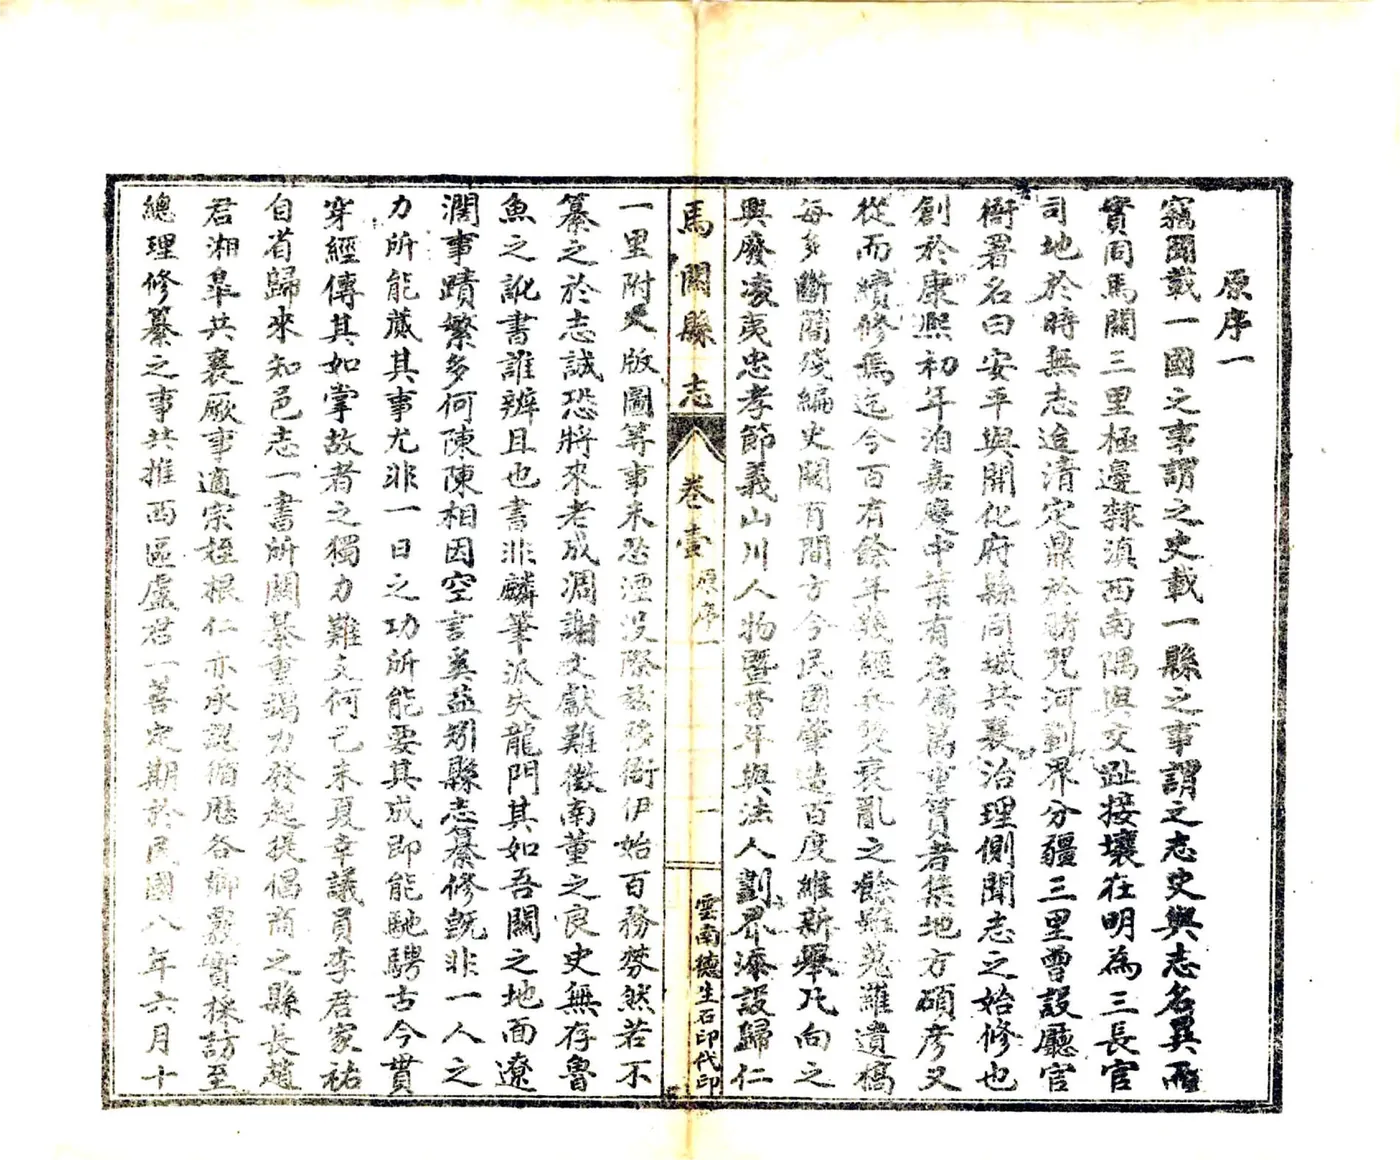 原序一
竊聞載一國之事謂之史載一縣之事謂之志史與志名異而
實同馬關三里極邊隸滇西南隅與交趾接壤在明為三長官
司地於時無志迨清定鼎於賭咒河劃界分疆三里曾設廳官
衙署名曰安平與開化府縣同城共襄治理側聞志之始修也
創於康熙初年洎嘉慶中葉有名儒萬重賓者集地方碩彥又
從而續修焉迄今百有餘年幾經兵燹衰亂之餘雖蒐羅遺稿
每多斷簡殘編史闕有間方今民國肇造百度維新舉凡向之
興廢凌夷忠孝節義山川人物暨昔年與法人劃界添設歸仁
馬關縣志
卷壹
原序一
一
雲南德生石印代印
一里附入版圖等事未忍湮沒際茲移衙伊始百務棼然若不
纂之於志誠恐將來老成凋謝文獻難徵南董之良史無存魯
魚之訛書誰辨且也書非麟筆派失龍門其如吾關之地面遼
濶事蹟繁多何陳陳相因空言奚益矧縣志纂修旣非一人之
力所能蕆其事尤非一日之功所能要其成即能馳騁古今貫
穿經傳其如掌故者之獨力難支何己未夏幸議員李君家祐
自省歸來知邑志一書所關綦重竭力發起提倡商之縣長趙
君湘皋共襄厥事適宗姪根仁亦承說循歷各鄉覈實採訪至
總理修纂之事共推西區盧君一善定期於民國八年六月十